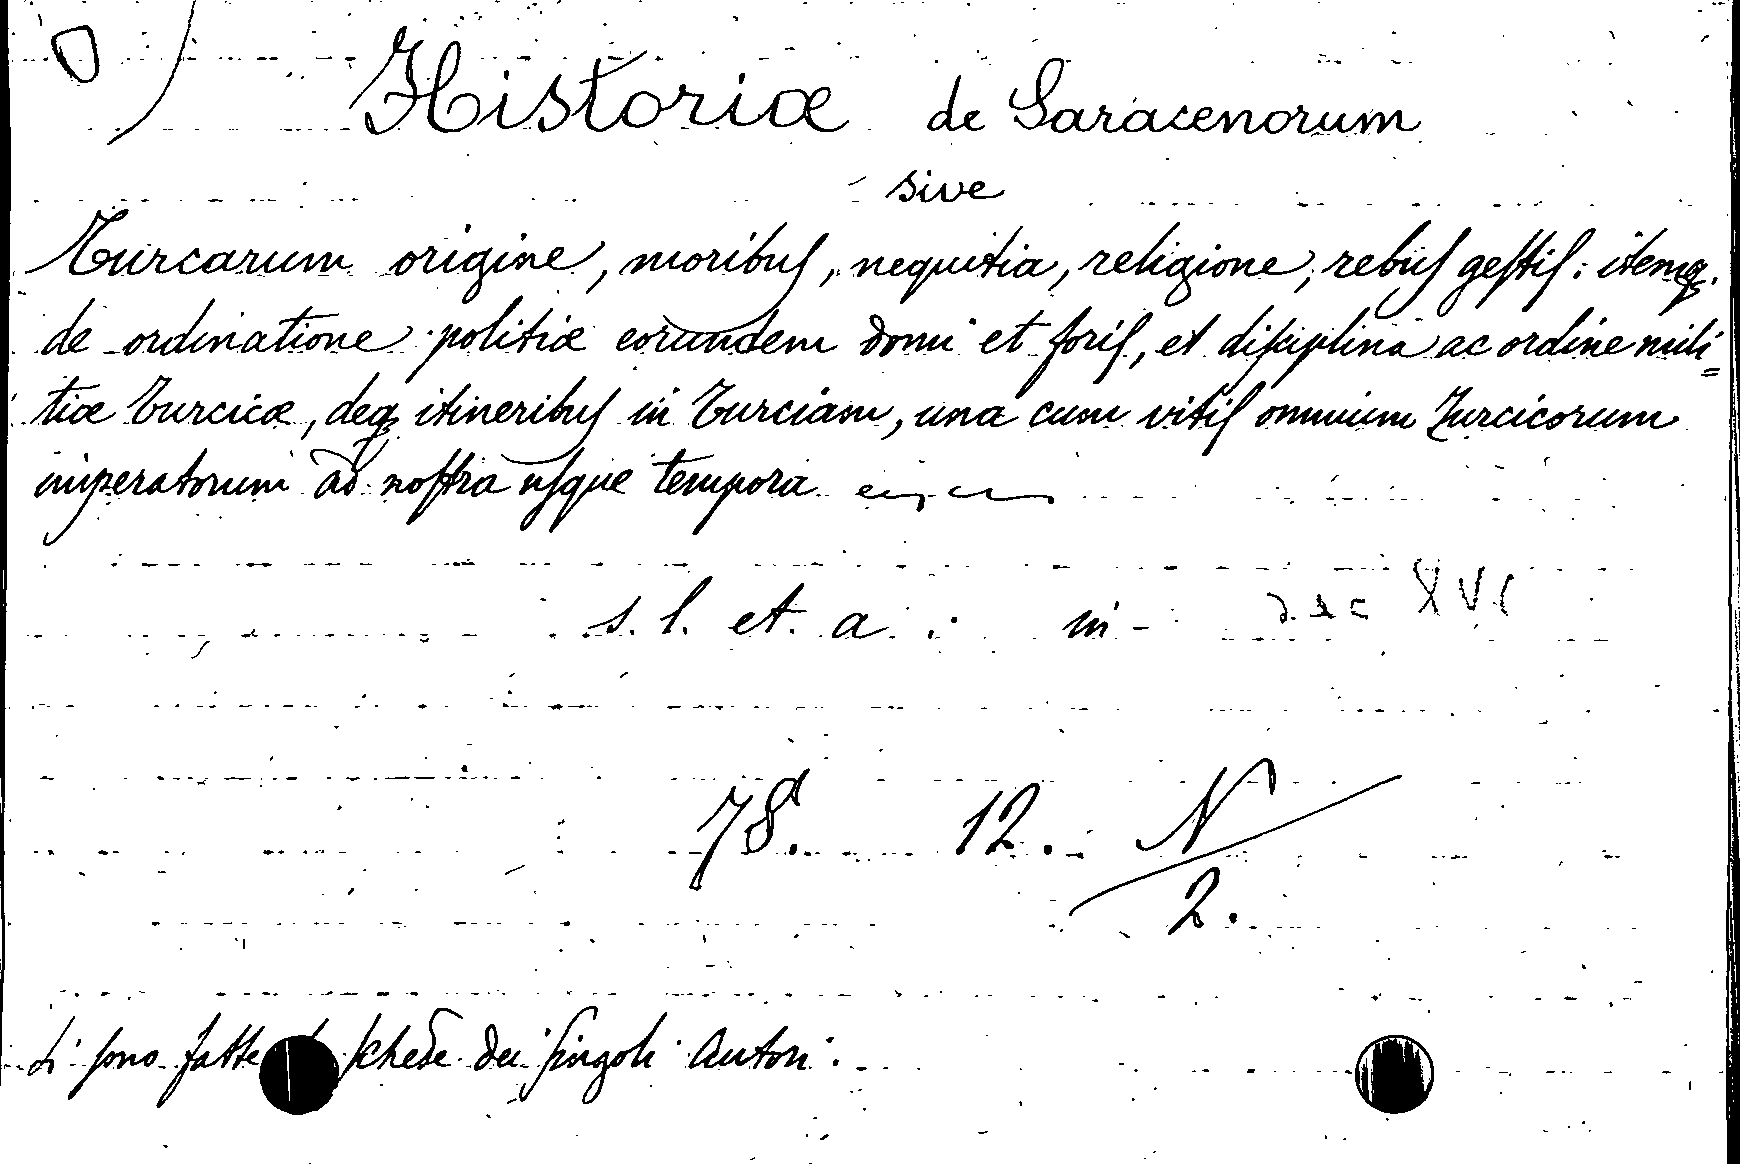 Historiæ de Saracenorum
sive
Turcarum origine, moribus, nequitia, religione, rebus gestis: itemq.
de ordinatione politiæ eorundem domi et foris, et disciplina ac ordine mili=
tiæ Turcicæ, deq itineribus in Turciam, una cum vitis omnium Turcicorum
imperatorum ad nostra usque tempora
s. l. et. a. : in - sec XVI
78. 12. N
2.
Si sono fatte schede dei singoli Autori.